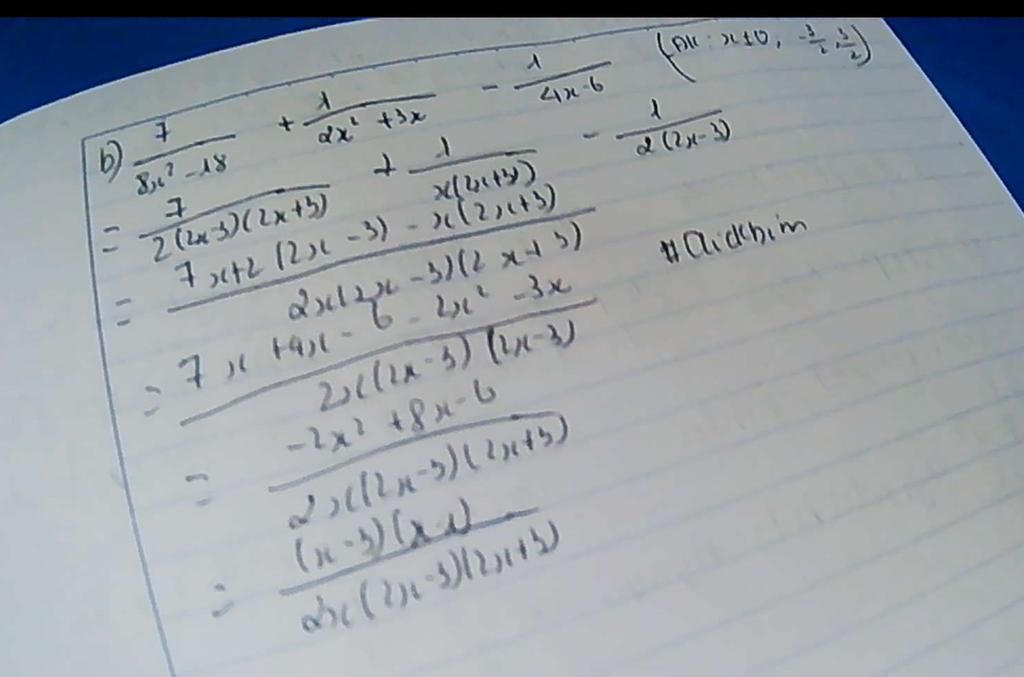 b) 7/(8x² - 18) + 1/(2x² + 3x) - 1/(4x-6) (ĐK: x≠0, -3/2, 3/2)
= 7/(2(2x-3)(2x+3)) + 1/(x(2x+3)) - 1/(2(2x-3))
= (7x+2(2x-3) - x(2x+3))/(2x(2x-3)(2x+3))
#Aidkbim
= (7x+4x-6-2x²-3x)/(2x(2x-3)(2x-3))
= (-2x²+8x-6)/(2x(2x-3)(2x+3))
= ((x-3)(x-1))/(2x(2x-3)(2x+3))